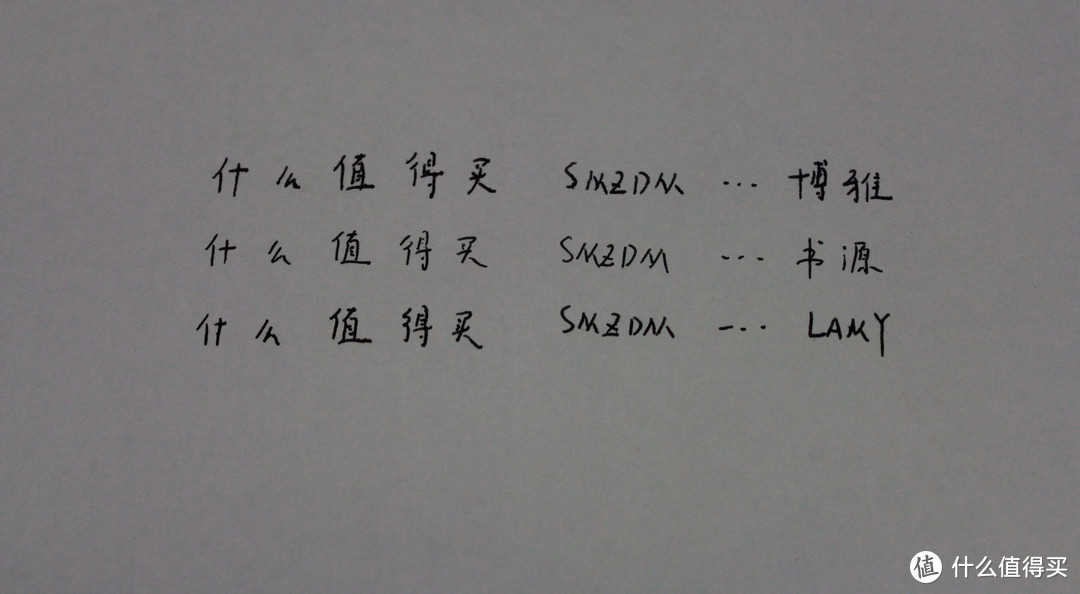 什么值得买 SMZDM ... 博雅
什么值得买 SMZDM ... 书源
什么值得买 SMZDM ... LAMY
值 什么值得买